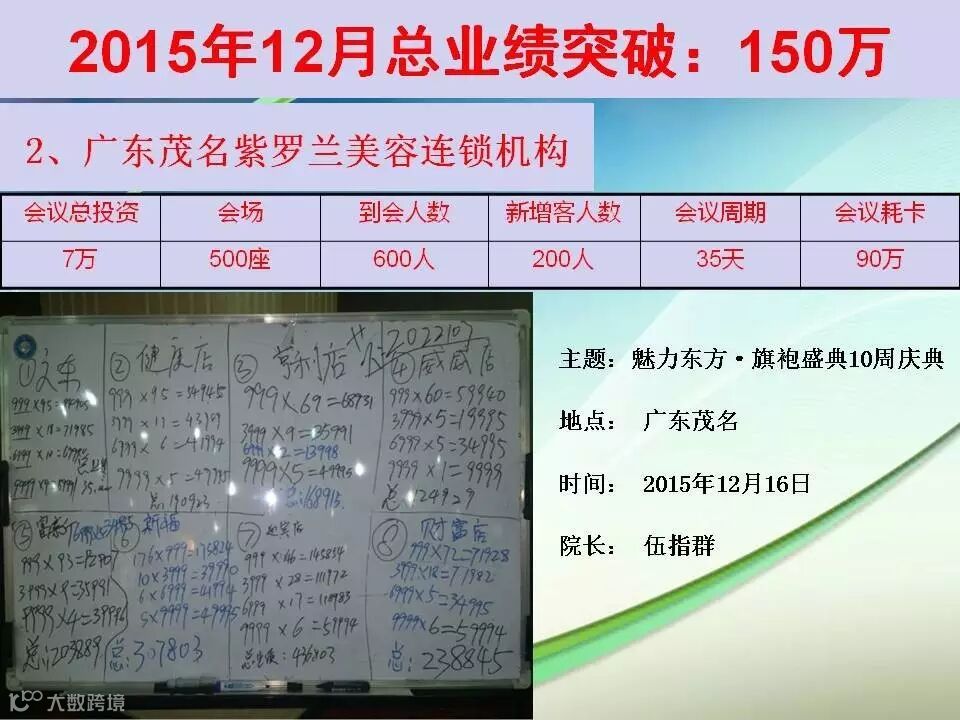 2015年12月总业绩突破：150万
2、广东茂名紫罗兰美容连锁机构
会议总投资 会场 到会人数 新增客人数 会议周期 会议耗卡
7万 500座 600人 200人 35天 90万
主题：魅力东方·旗袍盛典10周庆典
地点： 广东茂名
时间： 2015年12月16日
院长： 伍指群
2022103
② 健康店
999×95=94905
3999×18=71985
999×95=94945
6999×6=41994
9999×5=49995
总:190923
999×69=68931
3999×9=35991
6999×2=13998
9999×5=49995
总:168915
④ 威威店
999×60=59940
3999×5=19995
6999×5=34995
9999×1=9999
总:124929
⑤
3999×9=35991
9999×4=39996
总:203889
⑥ 新福
176×999=175824
10×3999=39990
6×6999=41994
5×9999=49995
总:307803
⑦
3999×28=111972
6999×17=118983
9999×6=59994
436803
⑧ 财富店
999×72=71928
3999×18=71982
6999×5=34995
9999×6=59994
总:238845
大数跨境